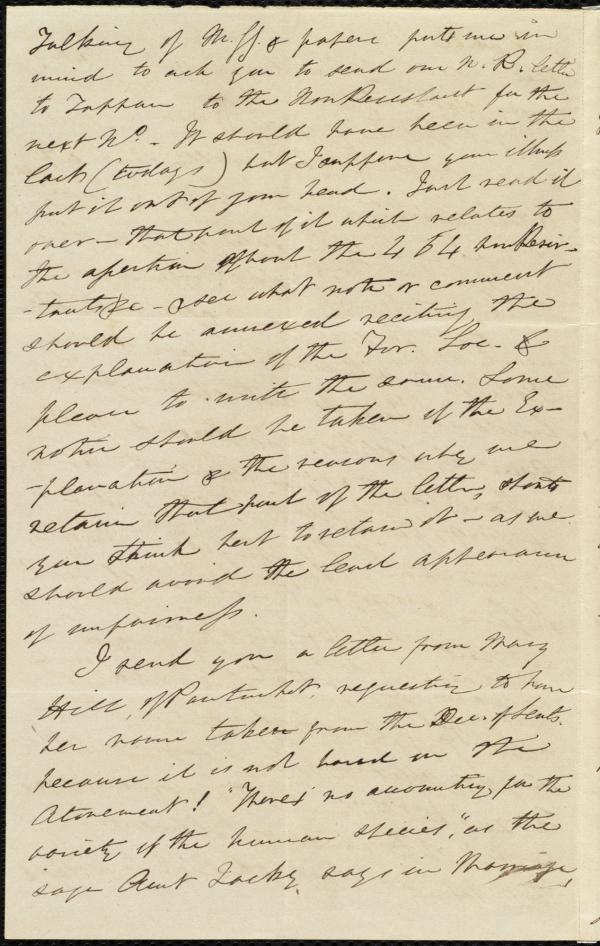 Talking of M. ff. & papers puts me in
mind to ask you to send our N. R. letter
to Tappan to the NonResistant for the
next No. - It should have been in the
last (todays) but I suppose your illness
put it out of your head. Just read it
over - that part of it which relates to
the assertion about the 4 54 nonResis-
-tants &c - & see what note or comment
should be annexed reciting the
explanation of the For. Soc. - &
please to write the same. Some
notice should be taken of the Ex-
-planation & the reasons why we
retain that part of the letter,
you think best to retain it - as we
should avoid the least appearance
of unfairness.
I send you a letter from Mary
Hill, of Pawtucket, requesting to have
her name taken from the Dec. of Sents.
because it is not based on the
Atonement! "There's no accounting for the
variety of the human species," as the
sage Aunt Jacky says in Marriage,